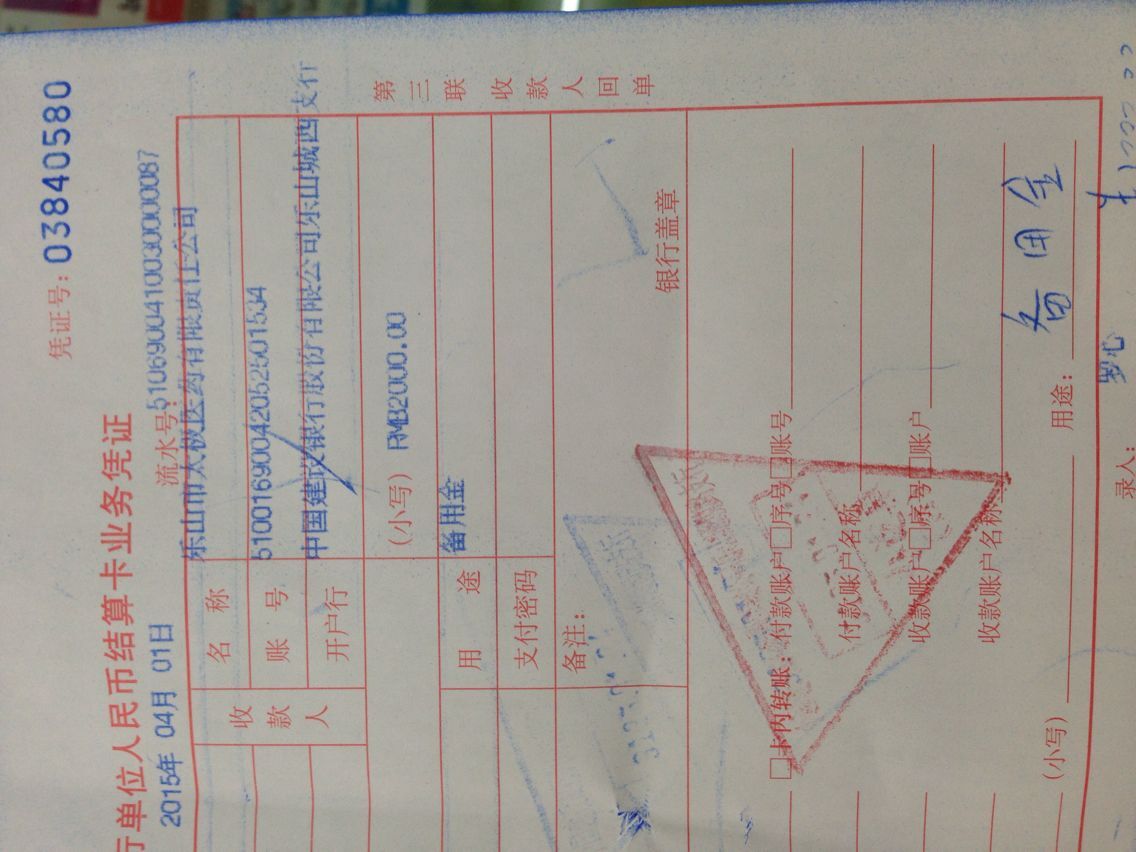 凭证号：03840580
行单位人民币结算卡业务凭证
2015年 04月 01日
流水号：5106900410030000087
收款人
名称 乐山市太极医药有限责任公司
账号 51001690042052501534
开户行 中国建设银行股份有限公司乐山城西支行
（小写） RMB2000.00
用途 备用金
支付密码
备注：
银行盖章
第三联 收款人回单
□卡内转账：付款账户□序号□账号
付款账户名称
收款账户□序号□账户
收款账户名称
（小写） 用途： 备用金
录入：